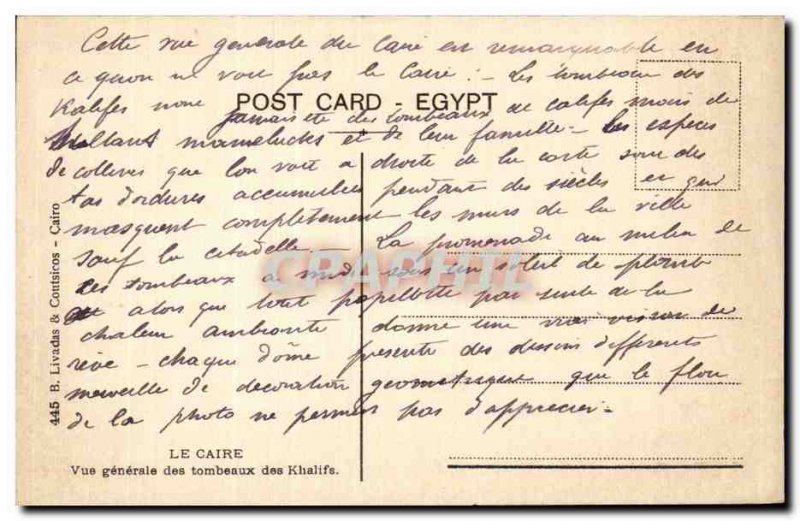 Cette vue generale du Caire est remarquable en
ce quon ne voit pas le Caire : - Les tombeaux des
Kalifes nont
POST CARD - EGYPT
jamais ete des tombeaux de califes mais de
sultans mamelucks et de leur famille - les especes
de collines que lon voit a droite de la carte sont des
tas dordures accumulées pendant des siècles et qui
masquent completement les murs de la ville
sauf la citadelle La promenade au milieu de
ces tombeaux a midi sous un soleil de plomb
alors que tout papillotte par suite de la
chaleur ambiante donne une vraie vision de
rêve - chaque dôme presente des dessins differents
merveille de decoration geometrique que le flou
de la photo ne permet pas d'apprecier -
CPAPHIL
445 B. Livadas & Coutsicos - Cairo
LE CAIRE
Vue générale des tombeaux des Khalifs.